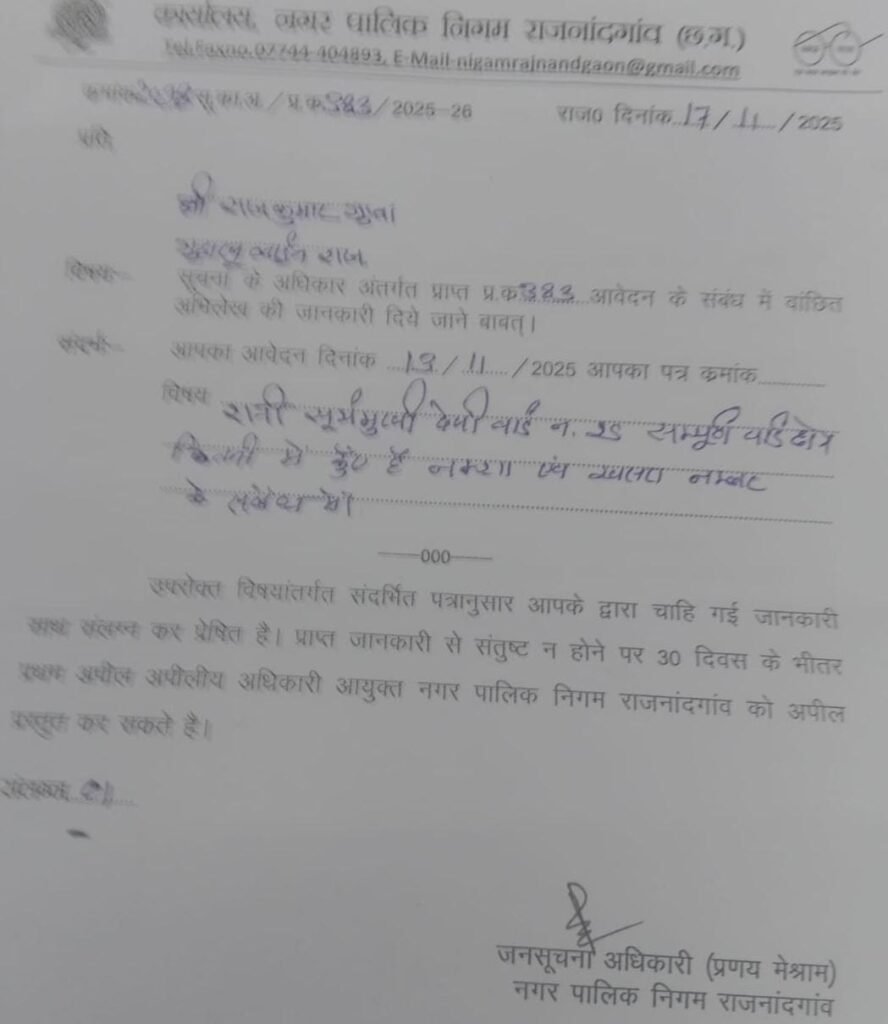 कार्यालय, नगर पालिक निगम राजनांदगांव (छ.ग.)
Tel.Faxno.07744-404893, E-Mail-nigamrajnandgaon@gmail.com
क्रमांक सू.का.अ./प्र.क.383/2025-26 राज0 दिनांक..17/11.../2025
प्रति
श्री राजकुमार
विषयः- सूचना के अधिकार अंतर्गत प्राप्त प्र.क.383...आवेदन के संबंध में वांछित
अभिलेख की जानकारी दिये जाने बाबत्।
संदर्भः- आपका आवेदन दिनांक ...13./11..../2025 आपका पत्र क्रमांक............
विषय रानी सूर्यमुखी देवी वार्ड न. सम्पूर्ण वार्ड क्षेत्र
कितनी में कुएं हैं नक्शा एवं खसरा नम्बर
के संबंध में।
-----000-----
उपरोक्त विषयांतर्गत संदर्भित पत्रानुसार आपके द्वारा चाहि गई जानकारी
साथ संलग्न कर प्रेषित है। प्राप्त जानकारी से संतुष्ट न होने पर 30 दिवस के भीतर
प्रथम अपील अपीलीय अधिकारी आयुक्त नगर पालिक निगम राजनांदगांव को अपील
प्रस्तुत कर सकते है।
संलग्नः
जनसूचना अधिकारी (प्रणय मेश्राम)
नगर पालिक निगम राजनांदगांव